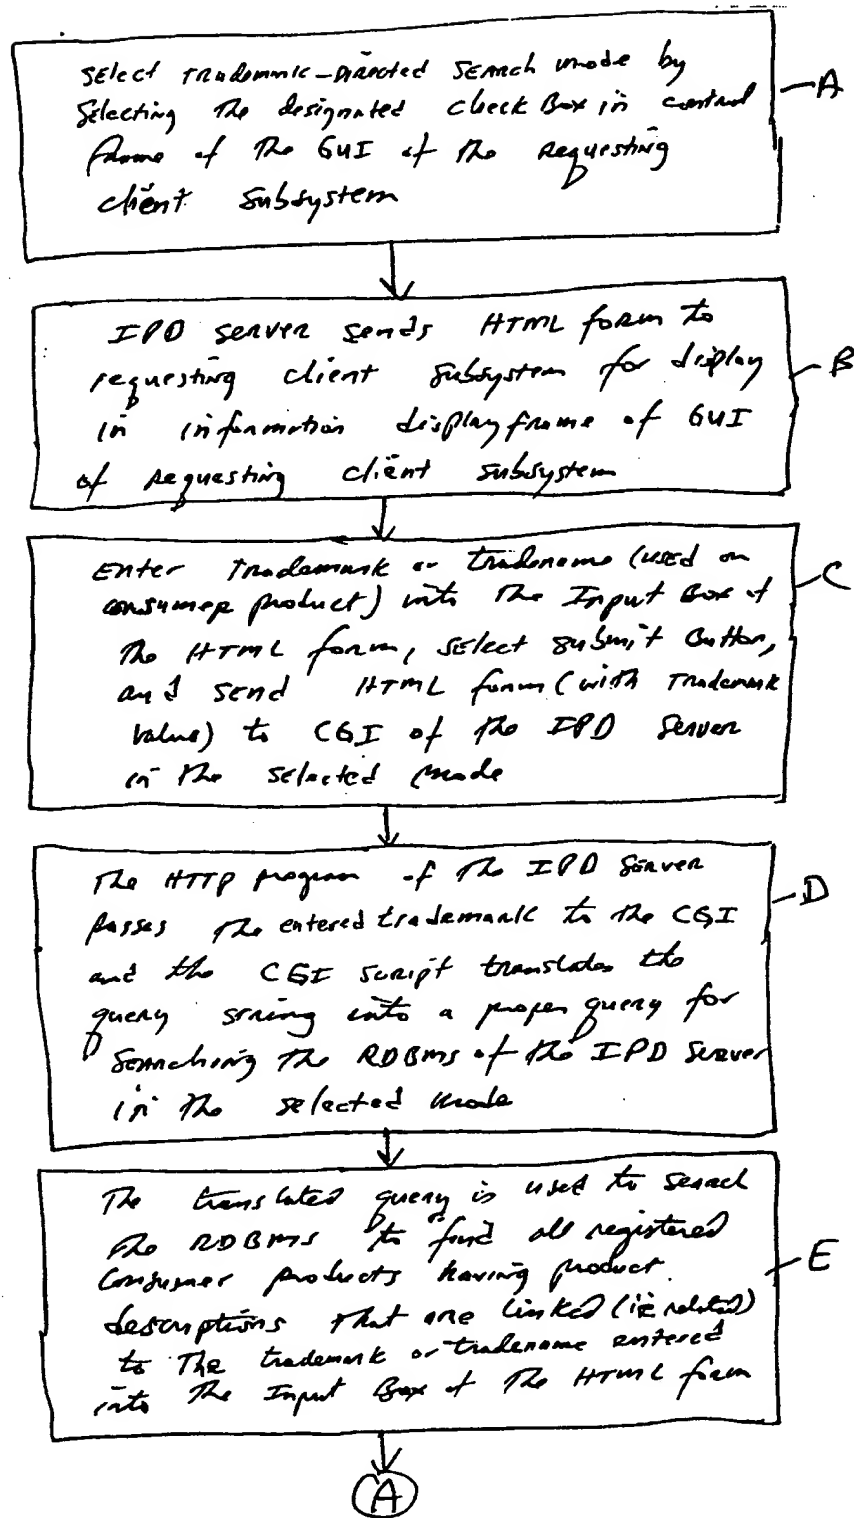 Select Trademark-Directed Search mode by
Selecting The designated check Box in control
frame of The GUI of The requesting
client Subsystem
A
IPD Server sends HTML form to
requesting client Subsystem for display
in information display frame of GUI
of requesting client Subsystem
B
Enter Trademark or tradename (used on
consumer product) into The Input Box of
The HTML form, select submit Button,
and send HTML form (with Trademark
Value) to CGI of The IPD Server
in The Selected Mode
C
The HTTP program of The IPD Server
passes The entered trademark to the CGI
and the CGI script translates the
query string into a proper query for
Searching The RDBMS of the IPD Server
in The selected mode
D
The translated query is used to search
The RDBMS to find all registered
Consumer products having product
descriptions that are linked (ie related)
to The trademark or tradename entered
into The Input Box of The HTML form
E
A